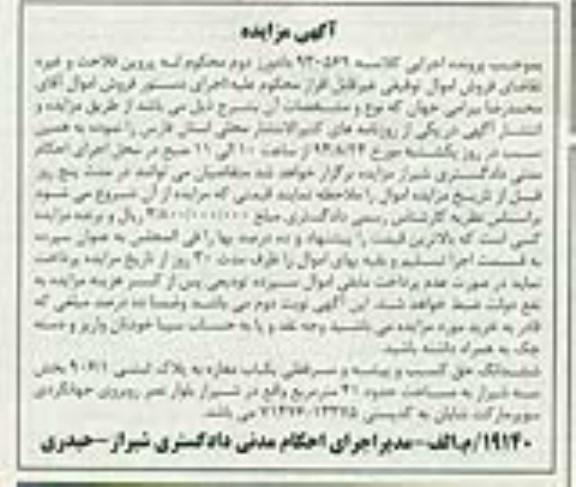 آگهی مزایده
بموجب پرونده اجرایی کلاسه ۹۳۰۵۶۹ دایره دوم محکوم له پروین فلاحت و غیره
تقاضای فروش اموال توقیفی غیرقابل افراز محکوم علیه اجرای دستور فروش اموال آقای
محمدرضا بیرامی جهان که نوع و مشخصات آن بشرح ذیل می باشد از طریق مزایده و
انتشار آگهی در یکی از روزنامه های کثیرالانتشار محلی استان فارس را نموده به همین
نسبت در روز یکشنبه مورخ ۹۳/۸/۲۴ از ساعت ۱۰ الی ۱۱ صبح در محل اجرای احکام
مدنی دادگستری شیراز مزایده برگزار خواهد شد متقاضیان می توانند در مدت پنج روز
قبل از تاریخ مزایده اموال را ملاحظه نمایند قیمتی که مزایده از آن شروع می شود
براساس نظریه کارشناس رسمی دادگستری مبلغ ریال و برنده مزایده
کسی است که بالاترین قیمت را پیشنهاد و ده درصد بها را فی المجلس به عنوان سپرده
به قسمت اجرا تسلیم و بقیه بهای اموال را ظرف مدت ۳۰ روز از تاریخ مزایده پرداخت
نماید در صورت عدم پرداخت مابقی اموال سپرده تودیعی پس از کسر هزینه مزایده به
نفع دولت ضبط خواهد شد. این آگهی نوبت دوم می باشد وضمنا ده درصد مبلغی که
قادر به خرید مورد مزایده می باشید وجه نقد و یا به حساب سیبا خودتان واریز و دسته
چک به همراه داشته باشید.
ششدانگ حق کسب و پیشه و سرقفلی یکباب مغازه به پلاک ثبتی بخش
سه شیراز به مساحت حدود ۳۱ مترمربع واقع در شیراز بلوار نصر روبروی جهانگردی
سوپرمارکت شایان به کدپستی می باشد.
۱۹۱۴۰/م.الف-مدیراجرای احکام مدنی دادگستری شیراز-حیدری